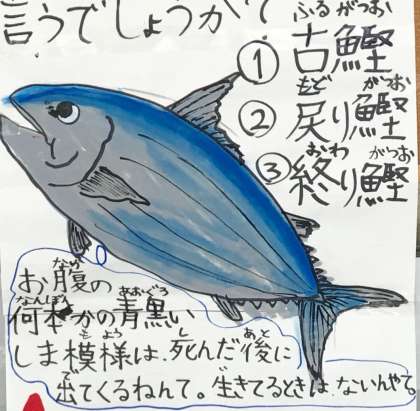 言うでしょうか?
ふる がつお
① 古鰹
もど がつお
② 戻り鰹
おわ がつお
③ 終り鰹
なか
お腹の
なんぼん あおぐろ
何本かの青黒い
もよう し あと
しま模様は、死んだ後に
で い
出てくるねんて。生きてるときは、ないんやて。